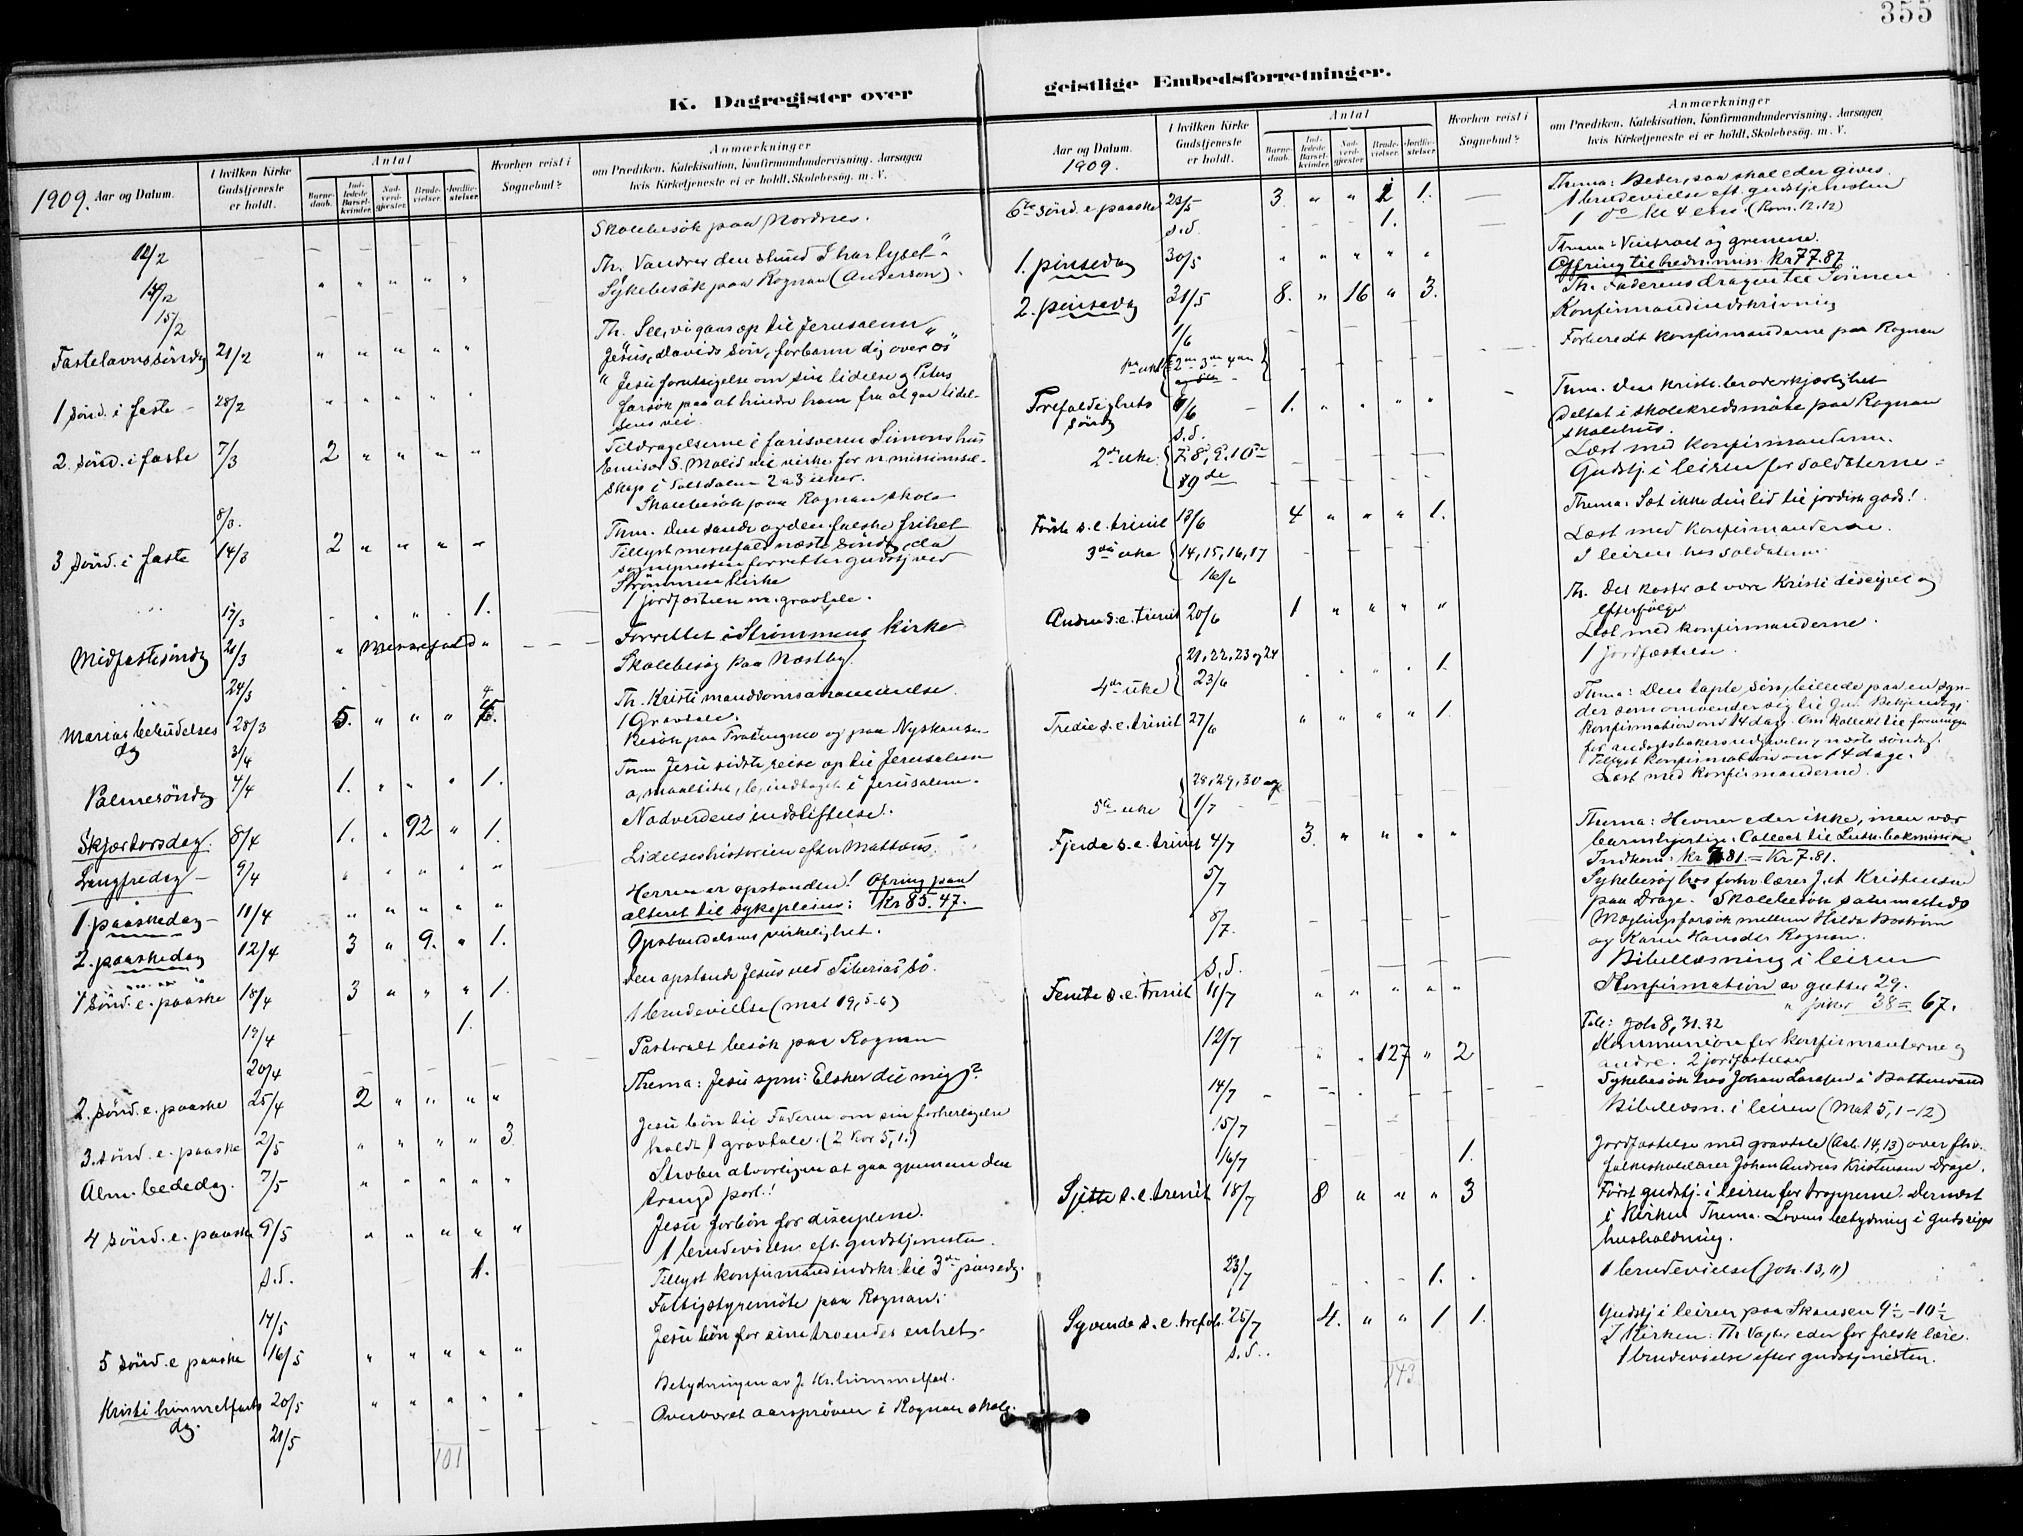 355
K. Dagregister over
geistlige Embedsforretninger.
1909. Aar og Datum.
I hvilken Kirke Gudstjeneste er holdt.
Antal
Barnedaab.
Indledede Barselkvinder.
Nadverdgjester.
Brudevielser.
Jordfæstelser.
Hvorhen reist i Sognebud?
Anmærkninger
om Prædiken, Katekisation, Konfirmandundervisning. Aarsagen
hvis Kirketjeneste ei er holdt, Skolebesög. m. V.
12/2 Skolebesök paa Nordnes.
14/2 " " " " " Th. Vandrer den stund I har lyset"
15/2 Sykebesök paa Rognan (Anderson).
Fastelavnssöndag 21/2 " " " " " Th. See, vi gaar op til Jerusalem "
Jesus, Davids sön, forbarm dig over os"
1 sönd. i faste 28/2 " " " " " " Jesu forutsigelse om sin lidelse og Peters
forsök paa at hindre ham fra at gaa lidelsens vei.
2. sönd. i faste 7/3 2 " " " " Tildragelserne i fariseeren Simons hus
Emisær S. Molid vil virke for n. missionsselskap
i Saltdalen 2 a 3 uker.
8/3. Skolebesök paa Rognan skole
3 sönd. i faste 14/3 2 " " " " Thm. Den sande og den falske frihet
Tillyst messefald næste söndag, da
sognepresten forretter gudstj ved
Strömmen kirke
17/3 1. 1 jordfæstelse m. gravtale.
Midfastesöndag 21/3 " Messefald " Forrettet i Strömmens kirke
24/3 Skolebesög paa Næstby.
Marias bebudelses dg 28/3 5. " " " Th. Kristi manddomsannammelse.
1 Gravtale.
3/4 Besök paa Trastingmo og paa Nyskansen
Palmesöndag 4/4 1. " " " 1. Tema Jesu sidste reise op til Jerusalem
Skjærtorsdag. 8/4 1. " 92 " 1. Nadverdens indstiftelse.
Langfredag 9/4 " " " " " Lidelseshistorien efter Mattæus.
1. paaskedag 11/4 " " " " " Herren er opstanden! Ofring paa
alteret til sykepleien: Kr 85.47.
2. paaskedag 12/4 3 " 9. " 1. Opstandelsens virkelighet.
1 sönd. e. paaske 18/4 3 " " " 1. Den opstandne Jesus ved Tiberias' sö.
19/4 1. 1 brudevielse (Mat 19, 5-6)
20/4 Pastoralt besök paa Rognan
2. sönd. e. paaske 25/4 2 " " " " Thema: Jesu spm: Elsker du mig?
3. sönd. e. paaske 2/5 " " " " 3 Jesu bön til Faderen om sin forherligelse
holdt 1 gravtale. (2 Kor 5, 1.)
Alm. bededag. 7/5 " " " " " Stræber alvorligen at gaa gjennem den
trange port!
4 sönd. e. paaske 9/5 " " " " " Jesu forbön for disciplene.
s.d. 1. 1 brudevielse eft. gudstjenesten.
Tillyst konfirmandindskr. til 3die pinsedg.
14/5 Fattigstyremöte paa Rognan.
5 sönd. e paaske 16/5 " " " " " Jesu bön for sine troendes enhet.
Kristi himmelfarts dg. 20/5 " " " " " Betydningen av J. Kr. himmelfart.
21/5 Overværet aarspröven i Rognan skole.
101
Aar og Datum. 1909.
I hvilken Kirke Gudstjeneste er holdt.
Antal
Barnedaab.
Indledede Barselkvinder.
Nadverdgjester.
Brudevielser.
Jordfæstelser.
Hvorhen reist i Sognebud?
Anmærkninger
om Prædiken, Katekisation, Konfirmandundervisning. Aarsagen
hvis Kirketjeneste ei er holdt, Skolebesög. m. V.
6te sönd. e paaske 23/5 3. " " 1. Thema: Beder, saa skal eder gives.
1 brudevielse eft. gudstjenesten
s.d. 1. 1 do kl 4 em. (Rom. 12.12)
1. pinsedag 30/5 " " " " " Thema: Vintræet og grenene.
Offring til hedn.mis. Kr 77.87
2. pinsedag 31/5 8. " 16 " 3. Th. Faderens dragen til Sönnen
1/6 Konfirmandindskrivning
1ste uke 2den 3die 4de Forberedt konfirmanderne paa Rognan
Trefoldighets söndg 6/6 1. " " " " Thm. Den kristl. broderkjærlighet
s.d. Deltat i skolekredsmöte paa Rognan
skolehus.
2den uke 7. 8, 9. 10de Læst med konfirmanderne.
Gudstj i leiren for soldaterne
Förste s. e. trinit 13/6 4 " " " 1. Thema: Sæt ikke din lid til jordisk gods!
3die uke 14, 15, 16, 17 Læst med konfirmanderne.
16/6 I leiren hos soldaterne
Anden s. e. trinit 20/6 1 " " " " Th. Det koster at være Kristi discipel og
efterfölger
4de uke 21, 22, 23 og 24 Læst med konfirmanderne.
23/6 1. 1 jordfæstelse.
Tredie s. e. trinit 27/6 " " " " 1. Thema: Den tapte sön, billede paa en synder
som omvender sig til Gud.
Konfirmation om 14 dage.
næste söndag.
Tillyst konfirmation om 14 dage.
5te uke 28, 29, 30 og 1/7 Læst med konfirmanderne.
Fjerde s. e. trinit 4/7 3. " " " " Thema: Hevner eder ikke, men vær
barmhjertige. Collect til Luth. bokmission
Indkom: Kr 7.81. = Kr 7.81.
5/7 Sykebesög hos forhv. lærer J. A Kristensen
paa Drage. Skolebesök sammesteds
8/7. Mæglingsforsök mellem Hilda Boström
og Karen Hansdtr Rognan.
s.d. Bibellæsning i leiren
Femte s. e. trinit 11/7 " " " " " Konfirmation av gutter 29.
" piker 38 = 67.
Tale: Joh 8, 31. 32
12/7 " " 127 " 2 Kommunion for konfirmanterne og
andre. 2 jordfæstelser
14/7 Sykebesök hos Johan Larsen i Bottenvand
15/7 Bibellæsn. i leiren (Mat 5, 1-12)
16/7 1. Jordfæstelse med gravtale (Aab. 14, 13) over fhv.
folkeskolelærer Johan Andreas Kristensen Drage.
Sjette s. e. trinit 18/7 8 " " " 3 Först gudstj. i leiren for tropperne. Dernæst
i kirken Thema. Lovens betydning i guds riges
husholdning.
23/7 1. 1 brudevielse (Joh. 13, 11)
Syvende s. e. trefol. 25/7 4. " " 1 1. Gudstj i leiren paa Skansen 9½-10½
I Kirken: Th Vogter eder for falsk lære.
s.d. 1 brudevielse efter gudstjenesten.
143